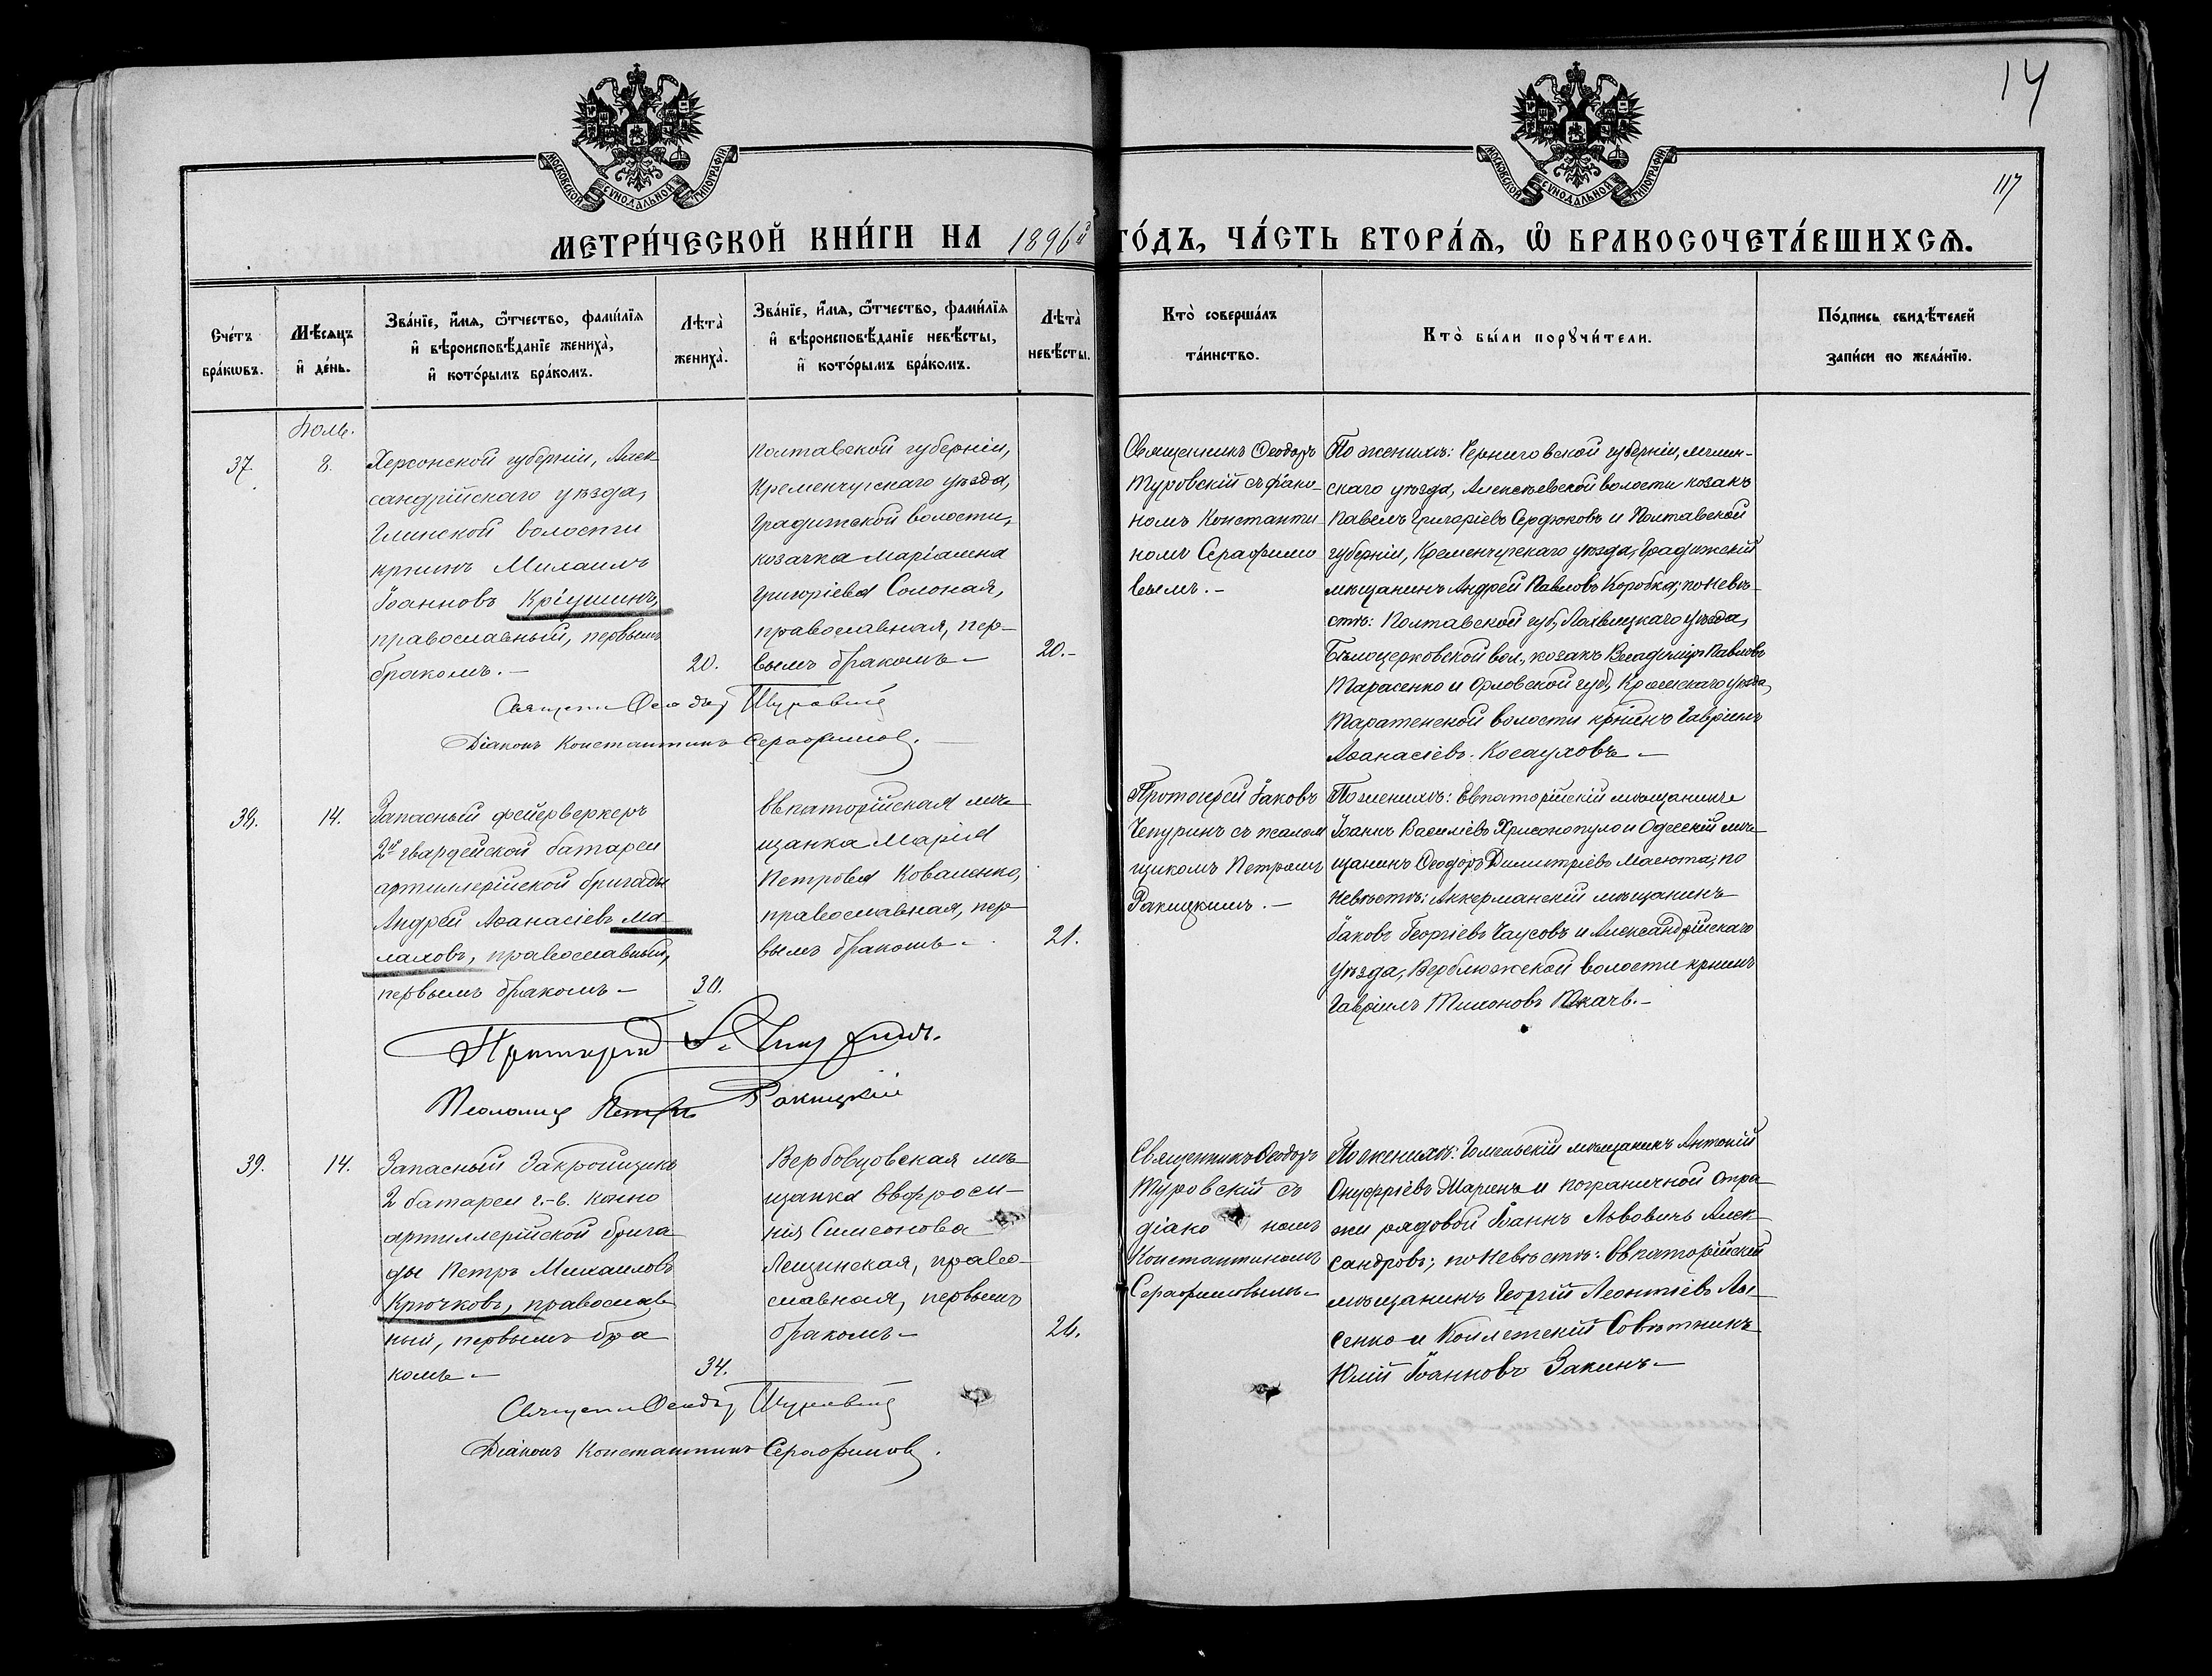 14
117
МОСКОВСКОЙ СѴНОДАЛЬНОЙ ТИПОГРАФІИ
МОСКОВСКОЙ СѴНОДАЛЬНОЙ ТИПОГРАФІИ
МЕТРИ́ЧЕСКОЙ КНИ́ГИ НА 1896й ГО́ДЪ, ЧА́СТЬ ВТОРА́Я, Ѽ БРАКОСОЧЕТА́ВШИХСЯ.
Сче́тъ
бра́кωвъ.
Мѣ́сяцъ
и҆ де́нь.
Зва́нїе, и҆́мя, ѻ҆́тчество, фами́лїя
и҆ вѣроисповѣ́данїе жениха̀,
и҆ кото́рымъ бра́комъ.
Лѣта̀
жениха̀.
Зва́нїе, и҆́мя, ѻ҆́тчество, фами́лїя
и҆ вѣроисповѣ́данїе невѣ́сты,
и҆ кото́рымъ бра́комъ.
Лѣта̀
невѣ́сты.
Кто̀ соверша́лъ
та́инство.
Кто̀ бы́ли порꙋчи́тели.
По́дпись свидѣ́телей
за́писи по жела́нїю.
Іюль.
37.
8.
Херсонской губерніи, Алек-
сандрійскаго уѣзда,
Глинской волости
крнинъ Михаилъ
Іоанновъ Кріушинъ,
православный, первымъ
бракомъ.-
20.
Полтавской губерніи,
Кременчугскаго уѣзда,
Градижской волости,
козачка Маріамна
Григоріева Солоная,
православная, пер-
вымъ бракомъ-
20.-
Священникъ Ѳеодоръ
Туровскій съ діако-
номъ Константи-
номъ Серафимо
вымъ.-
По женихѣ: Черниговской губерніи,
скаго уѣзда, Алексѣевской волости козакъ
Павелъ Григоріевъ Сердюковъ и Полтавской
губерніи, Кременчугскаго уѣзда, Градижскій
мѣщанинъ Андрей Павловъ Коробка; по невѣ-
стѣ: Полтавской губ., Лохвицкаго уѣзда,
Бѣлоцерковской вол., козакъ Владиміръ Павловъ
Тарасенко и Орловской губ., Кромскаго уѣзда,
волости крнинъ Гавріилъ
Аѳанасіевъ Косауховъ-
Священникъ Ѳеодоръ Туровскій
Діаконъ Константинъ Серафимовъ.
38.
14.
Запасный фейерверкеръ
2й гвардейской батареи
артиллерійской бригады
Андрей Аѳанасіевъ Ма-
лаховъ, православный,
первымъ бракомъ-
30.
Евпаторійская мѣ-
щанка Марія
Петрова Коваленко,
православная, пер-
вымъ бракомъ-
21.
Протоіерей Іаковъ
Чепуринъ съ псалом
щикомъ Петромъ
Ракицкимъ.-
По женихѣ: Евпаторійскій мѣщанинъ
Іоаннъ Василіевъ Хрисонопуло и Одесскій мѣ-
щанинъ Ѳеодоръ Димитріевъ Масюта; по
невѣстѣ: Аккерманскій мѣщанинъ
Іаковъ Георгіевъ Чаусовъ и Александрійскаго
уѣзда, Верблюжской волости крнинъ
Гавріилъ Тихоновъ Ткачъ.-
Протоіерей І. Чепуринъ.
Псаломщ Петръ Ракицкій
39.
14.
Запасный Закройщикъ
2 батареи г.-в. конно
артиллерійской брига
ды Петръ Михаиловъ
Крючковъ, православ
ный, первымъ бра
комъ-
34.
Вербовцовская мѣ-
щанка Евфроси-
нія Симеонова
Лещинская, право-
славная, первымъ
бракомъ-
26.
Священникъ Ѳеодоръ
Туровскій съ
діако номъ
Константиномъ
Серафимовымъ-
По женихѣ: Гомельскій мѣщанинъ Антоній
Онуфріевъ Маринъ и пограничной стра
жи рядовой Іоаннъ Львовичъ Алек-
сандровъ; по невѣстѣ: Евпаторійскій
мѣщанинъ Георгій Леонтіевъ Лы-
сенко и Коллежскій Совѣтникъ
Юлій Іоанновъ Закинъ-
Священникъ Ѳеодоръ Туровскій
Діаконъ Константинъ Серафимовъ.